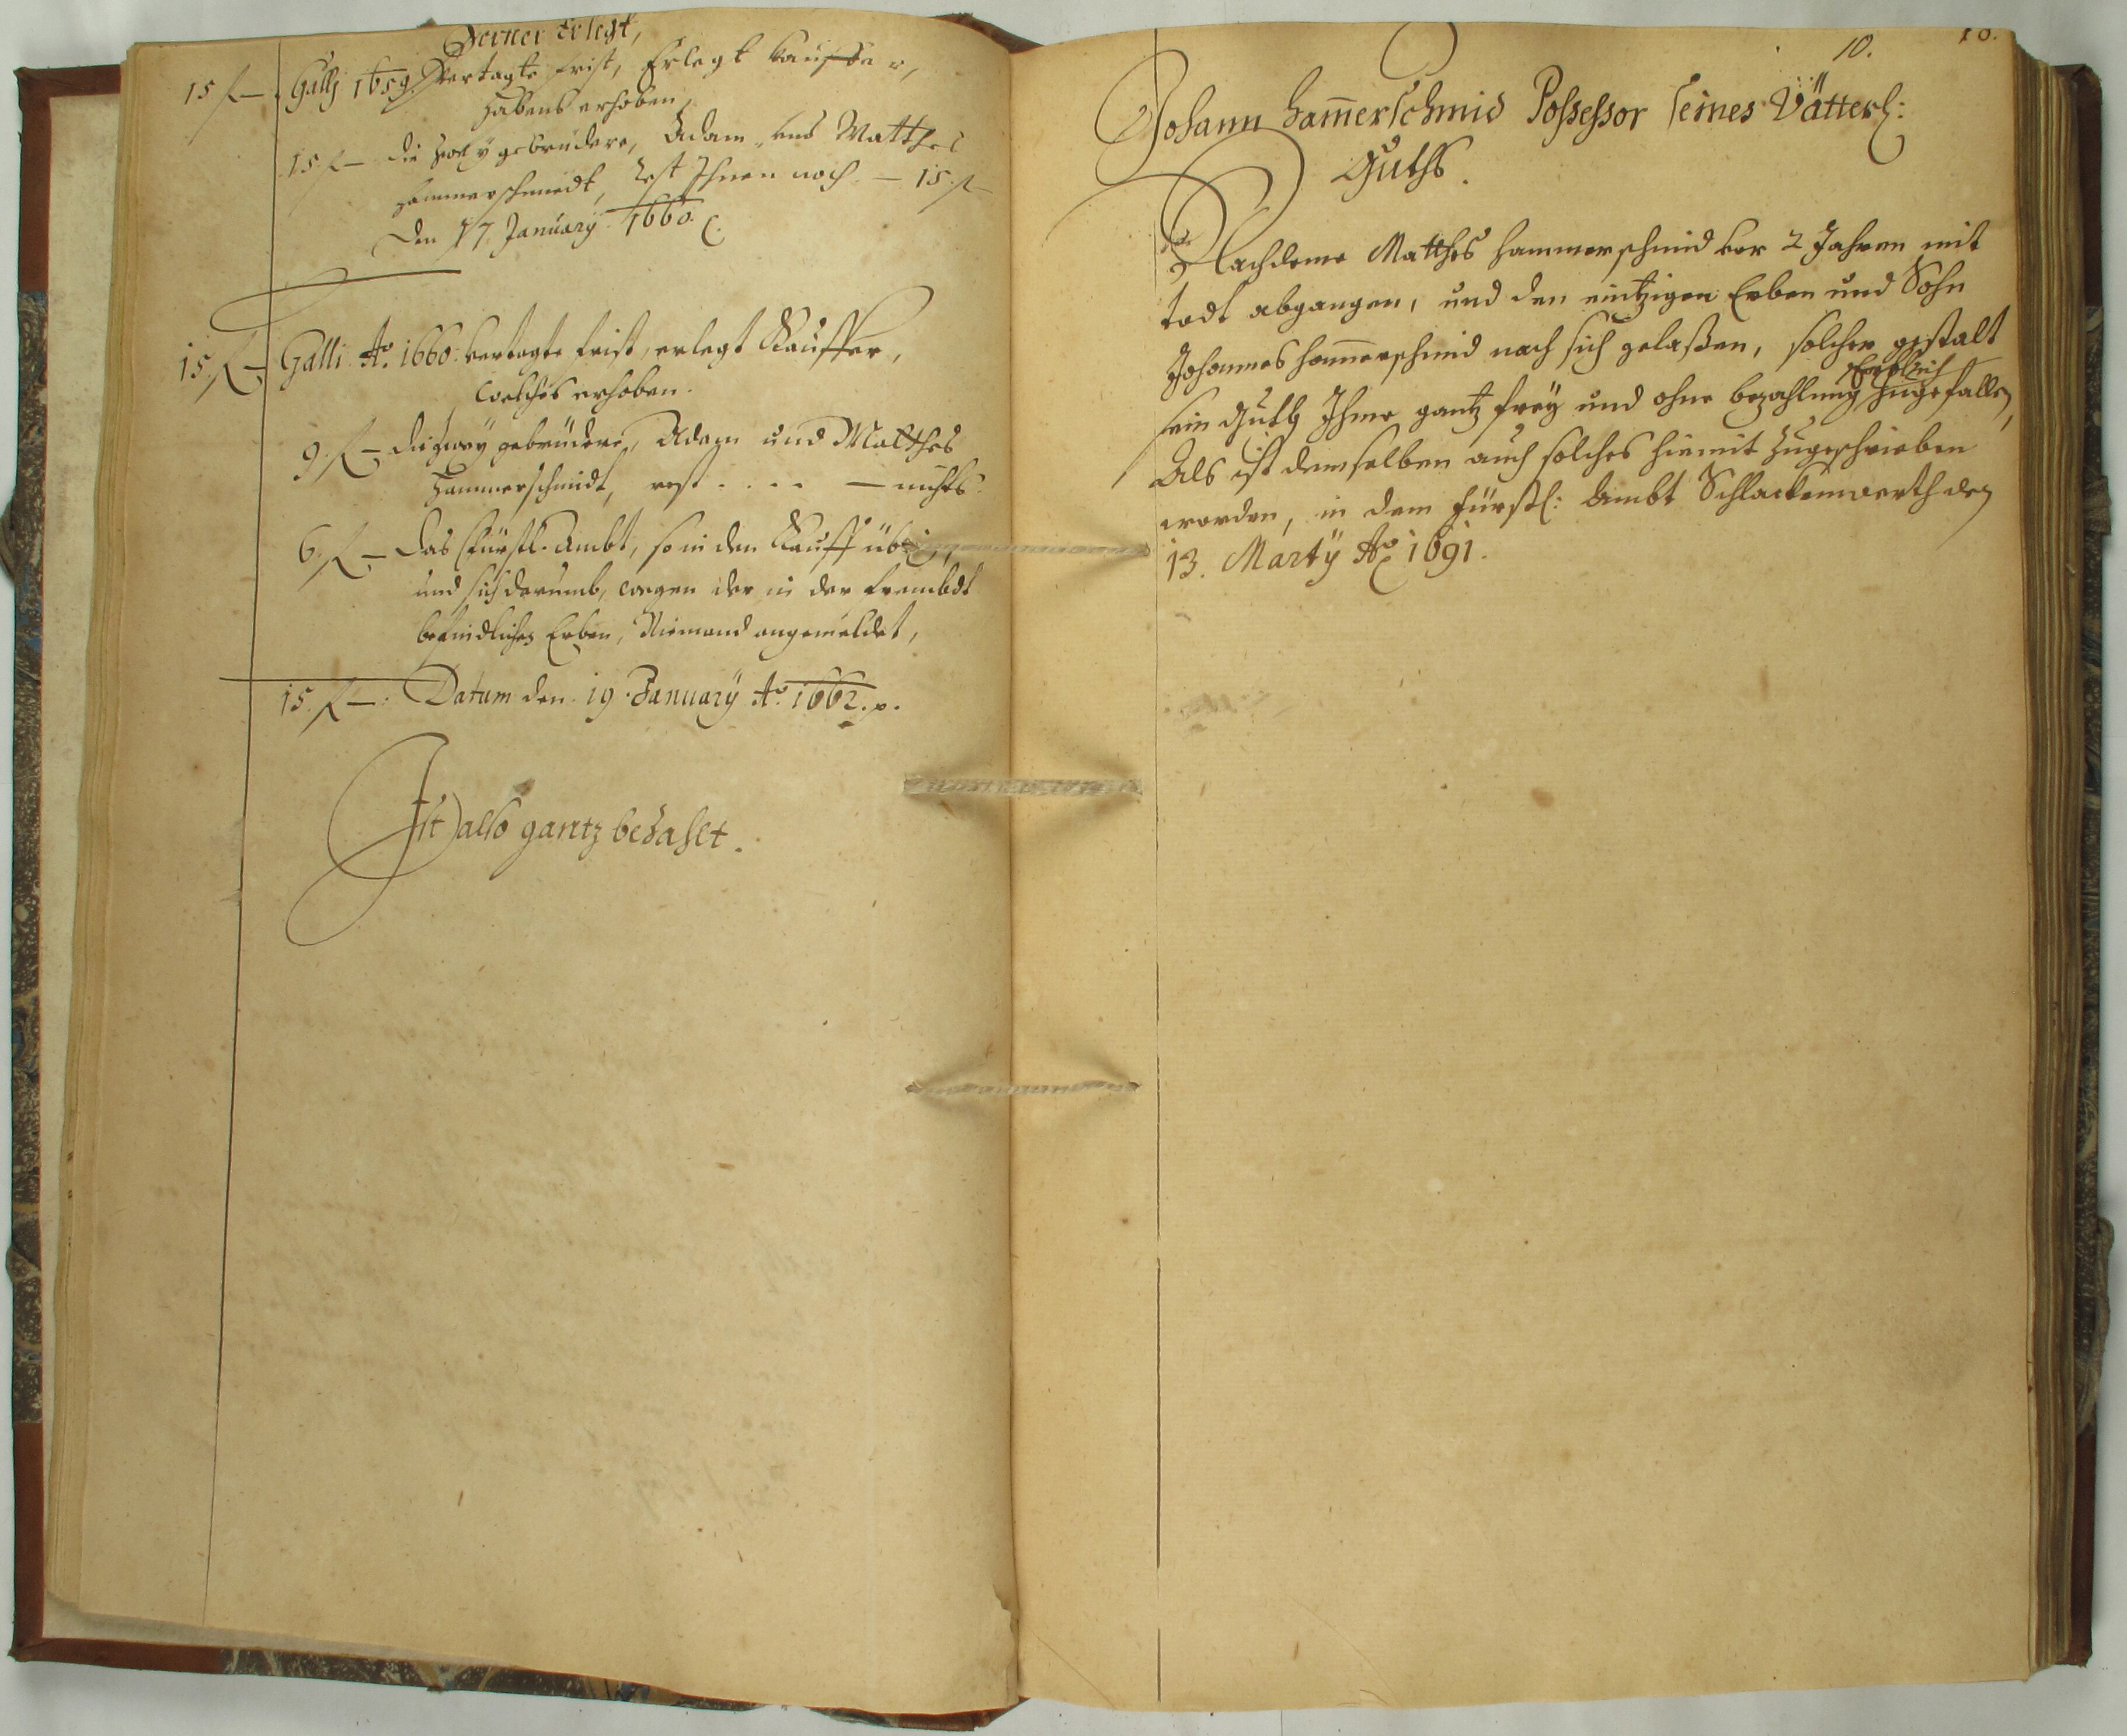 Ferner Erlegt,
15 f — Gallj 1659. Vertagte frist, Erlegt Kauffer,
habens erhoben,
15 f — die zwey gebrüdere, Adam und Matthes
Hammerschmidt, Rest Ihnen noch — 15 f
den 17 January 1660.
15. f — Galli Ao. 1660. Vertagte frist, erlegt Kauffer,
welches erhoben.
9. f — die zwey gebrüdere, Adam und Matthes
Hammerschmidt, rest . . . . — nichts.
6. f — das Fürstl. Ambt, so in den Kauff übrig,
und sich darumb, wegen der in der frembdt
befindlichen Erben, Niemand angemeldet,
15. f — Datum den 19. January Ao. 1662. p.
Ist also gantz bezahlt.
10. 10.
Johann Ham̄erschmid Possessor seines Vätterl:
Guths.
Nachdeme Matthes Hammerschmid vor 2 Jahren mit
todt abgangen, und den eintzigen Erben und Sohn
Johannes Ham̄erschmid nach sich gelaßen, solcher gestalt
Erblich
sein Guth Ihme gantz frey und ohne bezahlung zugefallen,
Als ist demselben auch solches hiemit zugeschrieben
worden, in dem Fürstl: Ambt Schlackenwerth den
13. Martÿ Ao 1691.